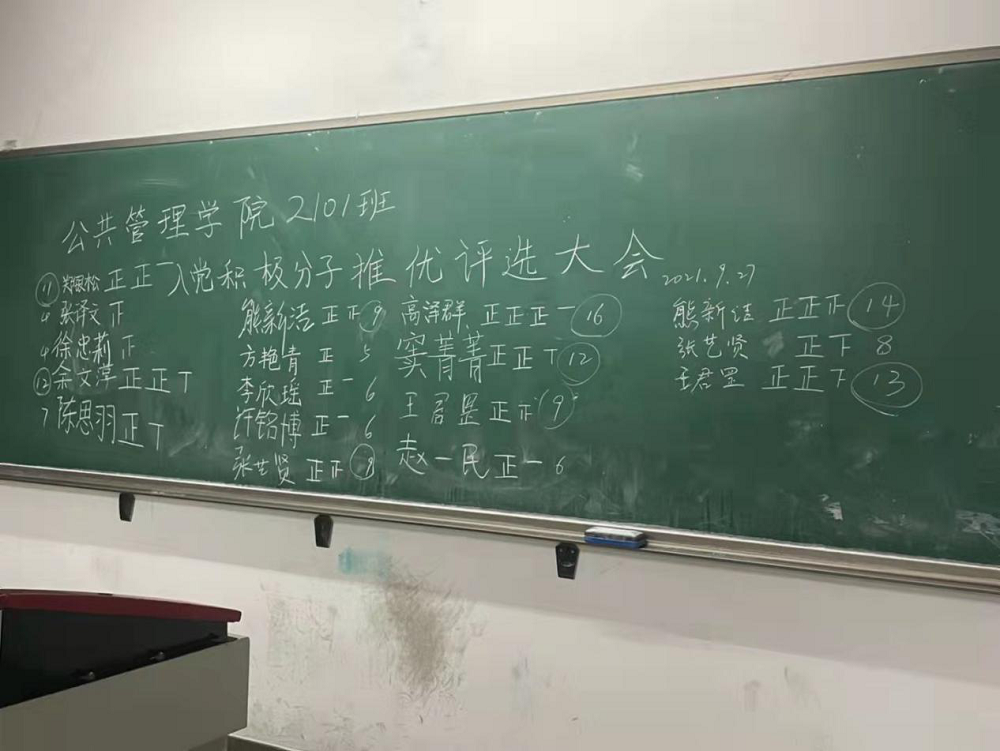 公共管理学院2101班
入党积极分子推优评选大会
2021.9.27
⑪ 松 正正一
4 张泽文 正
4 徐忠莉 正
⑫ 余文萍 正正T
7 陈思羽 正T
熊新洁 正正 ⑨
方艳青 正 5
李欣瑶 正一 6
许铭博 正一 6
张艺贤 正下 ⑧
高泽群 正正正一 ⑯
窦菁菁 正正T ⑫
王君罡 正正 ⑨
赵一民 正一 6
熊新洁 正正正 ⑭
张艺贤 正下 8
王君罡 正正下 ⑬